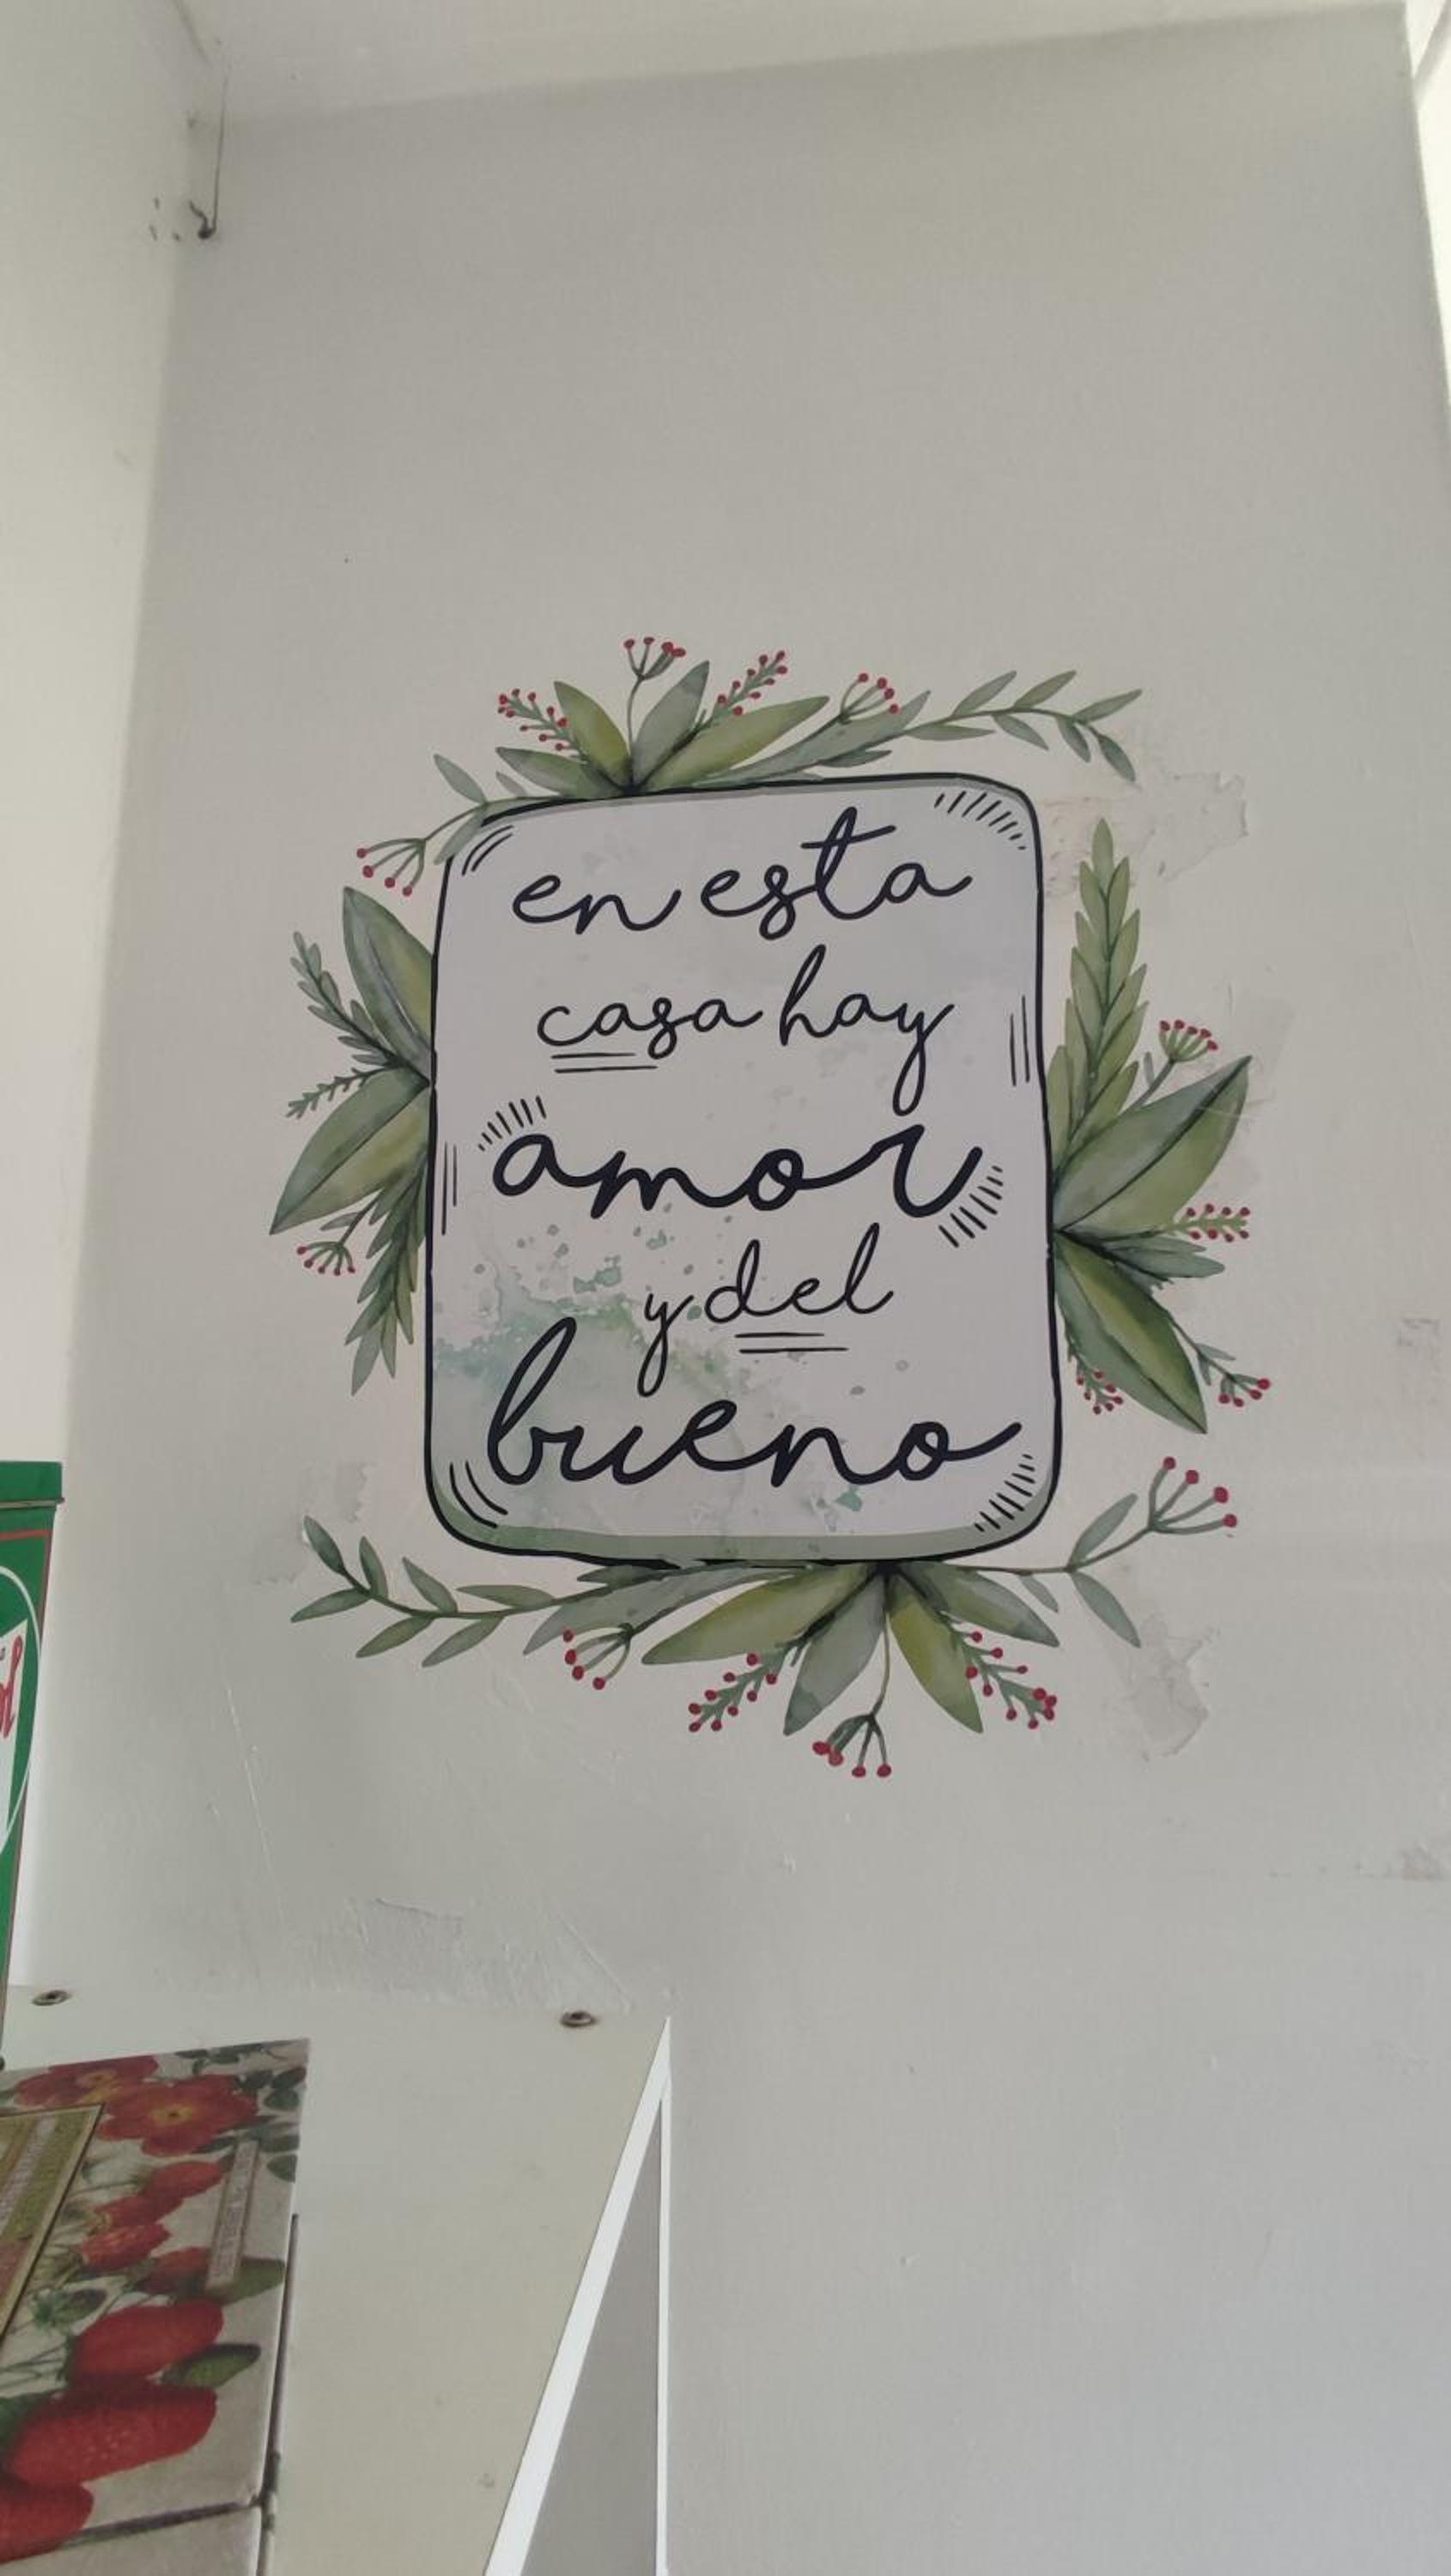 en esta
casa hay
amor
y del
bueno